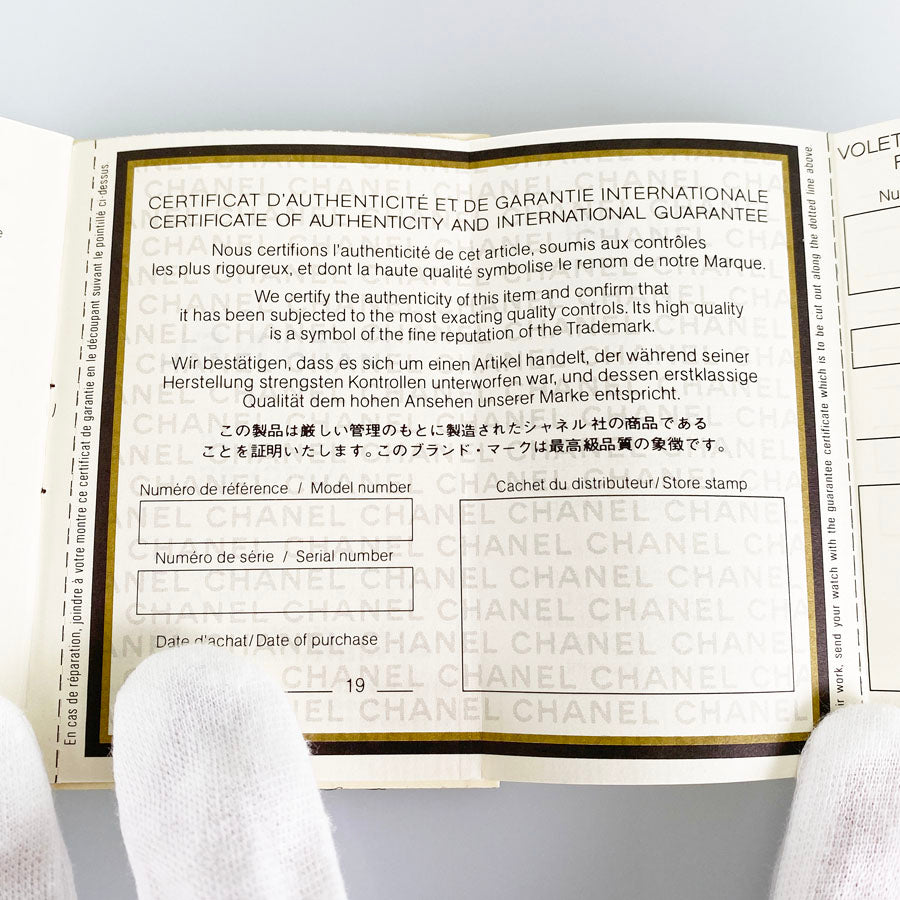 CERTIFICAT D'AUTHENTICITÉ ET DE GARANTIE INTERNATIONALE
CERTIFICATE OF AUTHENTICITY AND INTERNATIONAL GUARANTEE
Nous certifions l'authenticité de cet article, soumis aux contrôles
les plus rigoureux, et dont la haute qualité symbolise le renom de notre Marque.
We certify the authenticity of this item and confirm that
it has been subjected to the most exacting quality controls. Its high quality
is a symbol of the fine reputation of the Trademark.
Wir bestätigen, dass es sich um einen Artikel handelt, der während seiner
Herstellung strengsten Kontrollen unterworfen war, und dessen erstklassige
Qualität dem hohen Ansehen unserer Marke entspricht.
この製品は厳しい管理のもとに製造されたシャネル社の商品である
ことを証明いたします。このブランド・マークは最高級品質の象徴です。
Numéro de référence / Model number
Numéro de série / Serial number
Date d'achat/Date of purchase
19
Cachet du distributeur/Store stamp
En cas de réparation, joindre à votre montre ce certificat de garantie en le découpant suivant le pointillé ci-dessus.
work, send your watch with the guarantee certificate which is to be cut out along the dotted line above.
VOLET
CHANEL CHANEL CHANEL